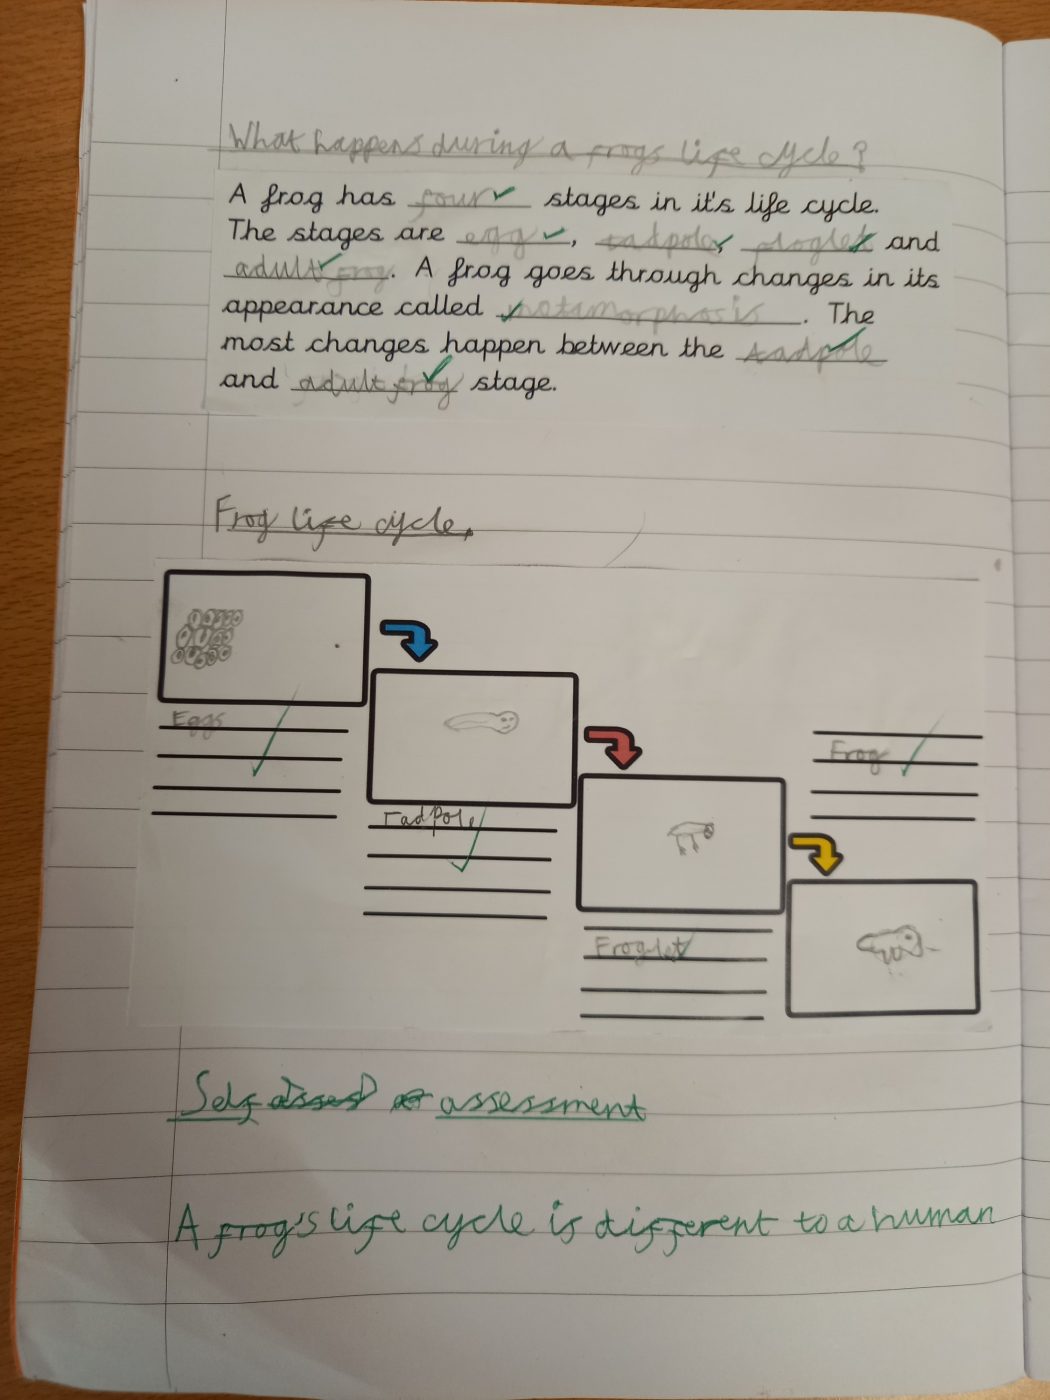 What happens during a frogs life cycle?
A frog has four stages in it's life cycle.
The stages are egg, tadpole, froglet and
adult frog. A frog goes through changes in its
appearance called metamorphosis. The
most changes happen between the tadpole
and adult frog stage.
Frog life cycle.
Eggs
Tadpole
Froglet
Frog
Self assessment
A frog's life cycle is different to a human